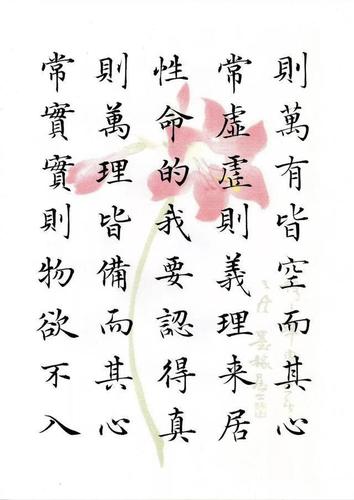 則萬有皆空而其心
常虛虛則義理来居
性命的我要認得真
則萬理皆備而其心
常實實則物欲不入